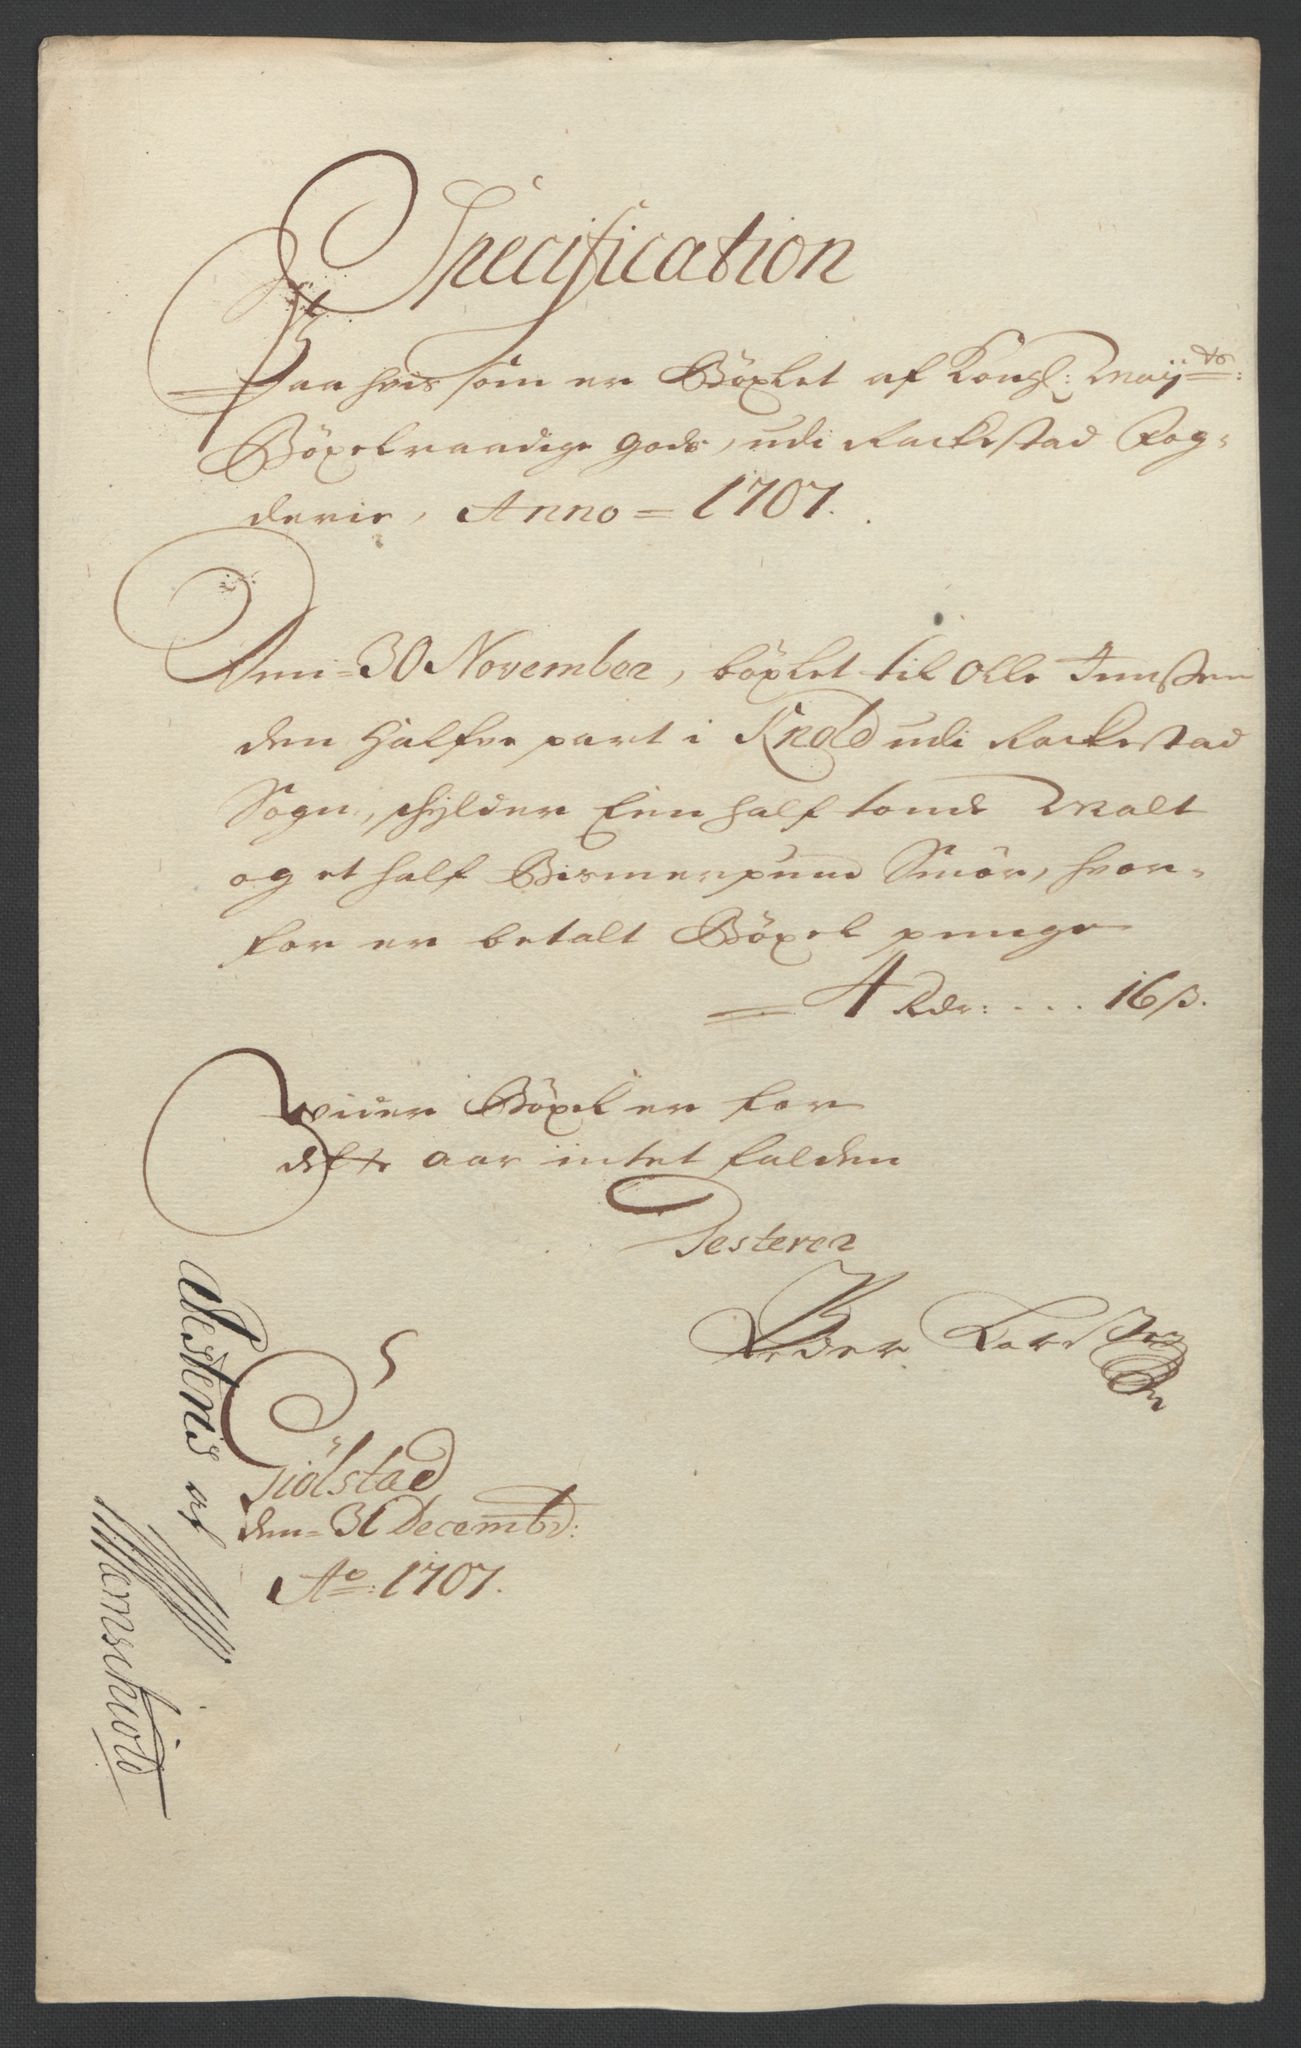 Specification
Paa hvis som er Böxlet af Kongl: Mayjts:
Böxelraadige gods, udi Rackestad Fog=
derie, Anno = 1707.
Den = 30 November, böxlet til Olle Jenssen
den Halfve part i Knold udi Rackestad
Sogn, schylder Een half tonde Malt
og et half Bismerpund Smör, hvor=
for er betalt Böxel penge
= 4 Rdr: . . . 16 s.
Vider Böxel er for
dette aar intet falden
Testerer
Peder Larssen
Giölstad
den = 31 Decembr:
Ao: 1707.
Testeris af